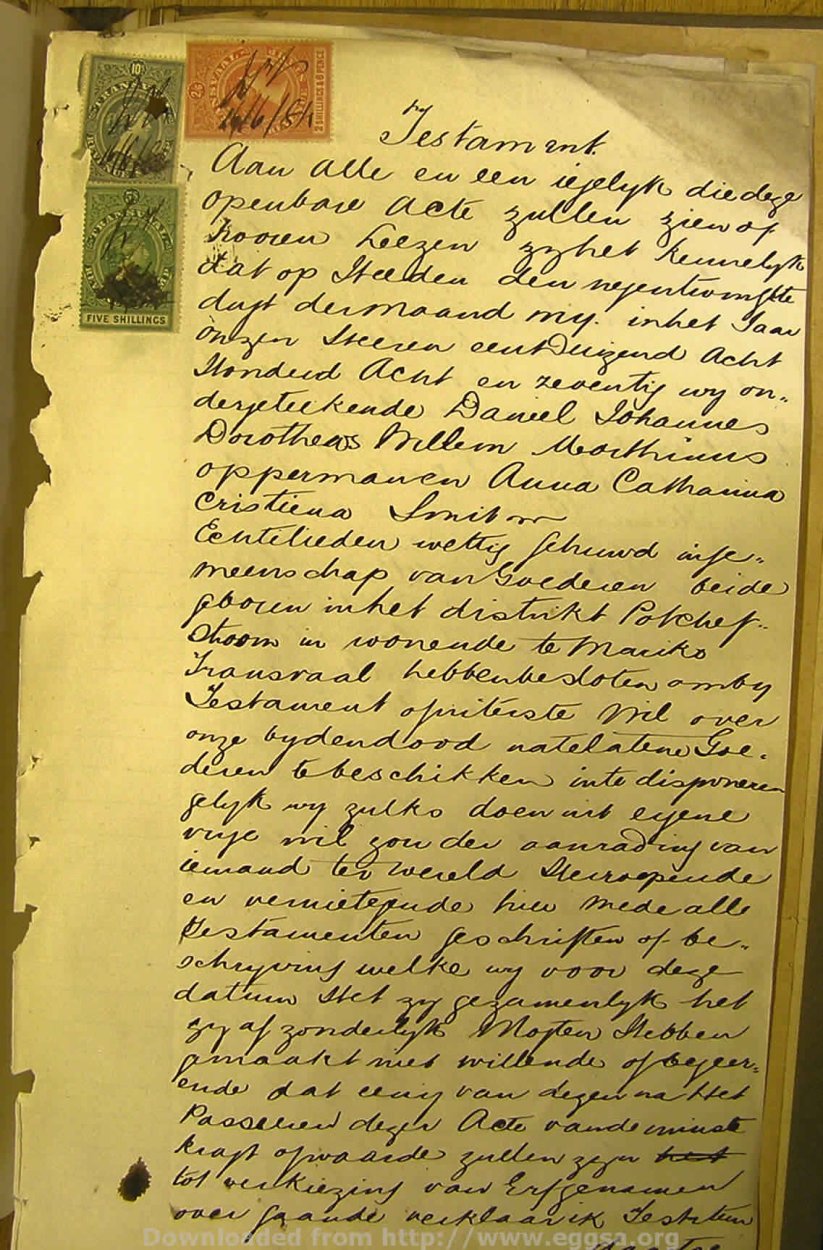 Testament.
Aan alle en een iegelyk die deze
openbare acte zullen zien of
hooren Leezen zy het kennelyk
dat op Heeden den negentwingste
dag der maand my. in het Jaar
onzen Heeren een Duizend Acht
Honderd Acht en zeventig wy on„
dergeteekende Daniel Johannes
Dorotheas Willem Marthinus
oppermanen Anna Catharina
Cristiena Smit
Echtelieden wettig gehuwd inge„
meenschap van Goederen beide
geboren in het distrikt Potchef„
stroom in wonende te Mariko
Transvaal hebben besloten om by
Testament of uiterste Wil over
onze by den dood natelatene Goe„
deren te beschikken in te disponeren
gelyk wy zulks doen uit eigene
vrye wil zonder aanrading van
iemand ter wereld Herroepende
en vernietegende hier mede alle
Testamenten geschriften of be„
schryving welke wy voor deze
datum Het zy gezamenlyk het
zy afzonderlyk Mogten Hebben
gemaakt niet willende of begeer„
ende dat eenig van dezen na Het
Passeeren dezer Acte van de minste
kragt of waarde zullen zyn het
tot verkiezing van Erfgenamen
over gaande verklaar ik Testateur
TRANSVAAL
10/
2/6
2 SHILLINGS & 6 PENCE
TRANSVAAL
5/
FIVE SHILLINGS
Downloaded from http://www.eggsa.org